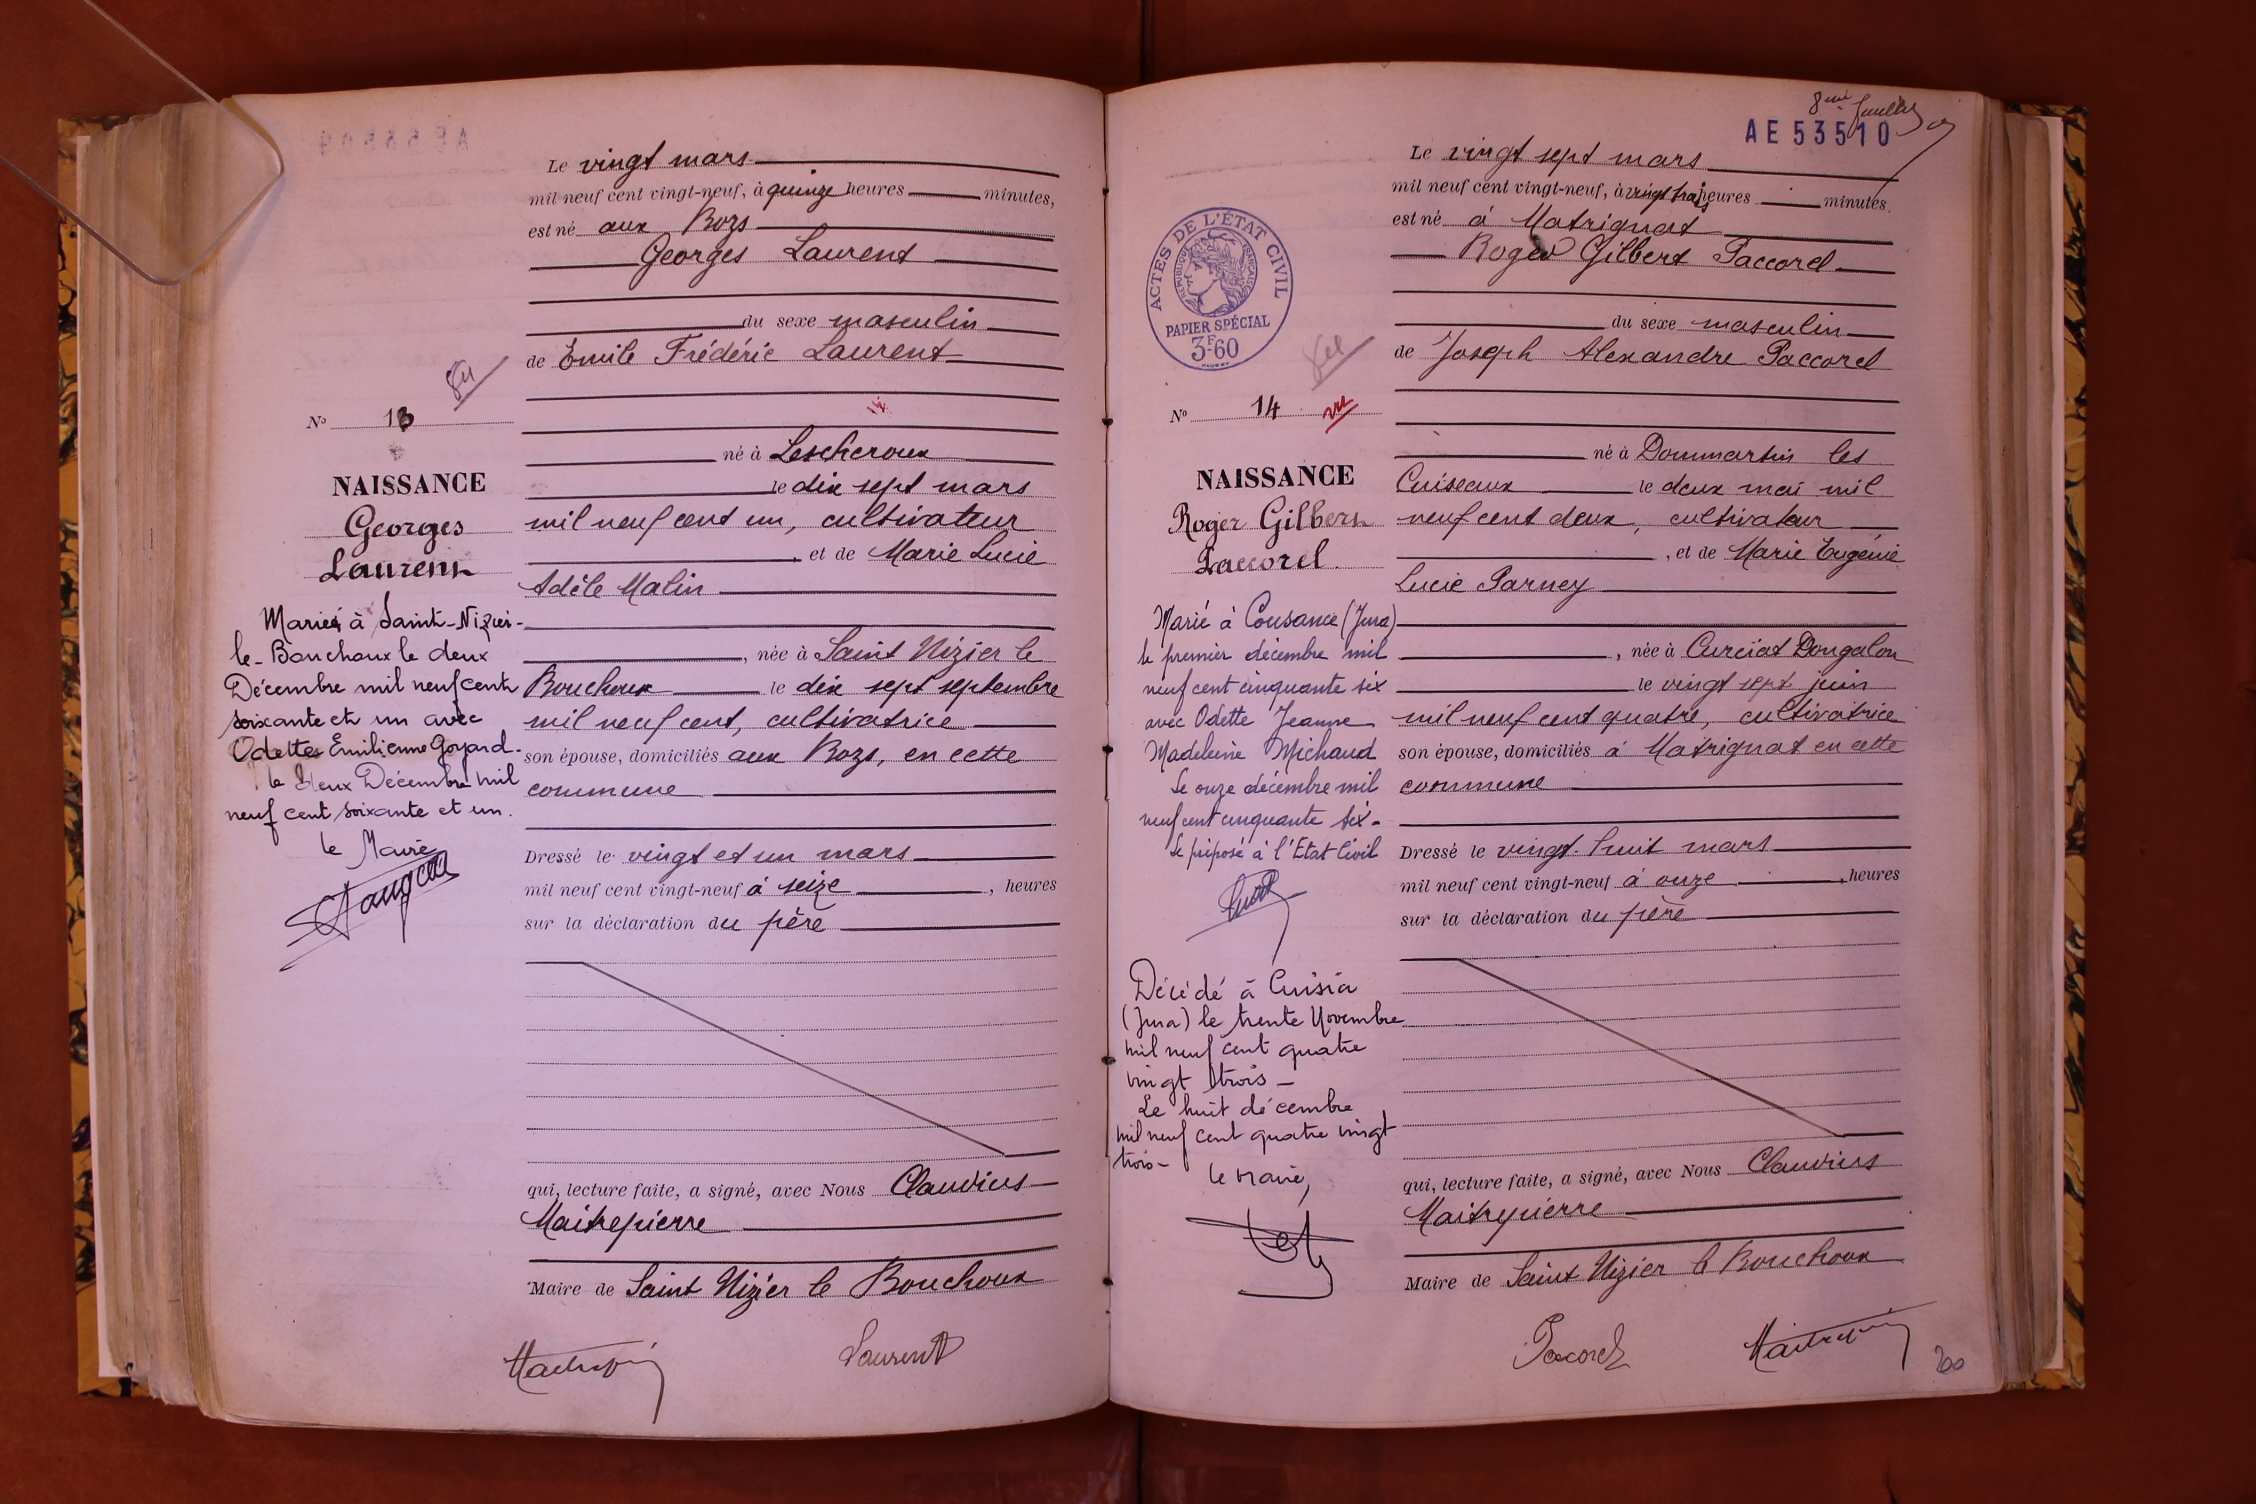 Le vingt mars
mil neuf cent vingt-neuf, à quinze heures minutes,
est né aux Bozs
Georges Laurent
du sexe masculin
de Emile Frédéric Laurent
né à Lescheroux
le dix sept mars
mil neuf cent un, cultivateur
, et de Marie Lucie
Adèle Malin
, née à Saint Nizier le
Bouchoux le dix sept septembre
mil neuf cent, cultivatrice
son épouse, domiciliés aux Bozs, en cette
commune
Dressé le vingt et un mars
mil neuf cent vingt-neuf à seize , heures
sur la déclaration du père
qui, lecture faite, a signé, avec Nous Claudius
Maitrepierre
Maire de Saint Nizier le Bouchoux
Laurent
No 13
NAISSANCE
Georges
Laurent
Marié à Saint-Nizier-
le-Bouchoux le deux
Décembre mil neuf cent
soixante et un avec
Odette Emilienne Goyard.
le deux Décembre mil
neuf cent soixante et un.
le Maire
8eme feuillet
AE 53510
Le vingt sept mars
mil neuf cent vingt-neuf, à vingt trois heures minutes
est né à Matrignat
Roger Gilbert Paccorel
du sexe masculin
de Joseph Alexandre Paccorel
né à Dommartin les
Cuiseaux le deux mai mil
neuf cent deux, cultivateur
, et de Marie Eugénie
Lucie Parney
, née à Curciat Dongalon
le vingt sept juin
mil neuf cent quatre, cultivatrice
son épouse, domiciliés à Matrignat en cette
commune
Dressé le vingt-huit mars
mil neuf cent vingt-neuf à onze , heures
sur la déclaration du père
qui, lecture faite, a signé, avec Nous Claudius
Maitrepierre
Maire de Saint Nizier le Bouchoux
Paccorel
200
ACTES DE L'ÉTAT CIVIL
RÉPUBLIQUE FRANÇAISE
PAPIER SPÉCIAL
3F60
No 14 vu
NAISSANCE
Roger Gilbert
Paccorel.
Marié à Cousance (Jura)
le premier décembre mil
neuf cent cinquante six
avec Odette Jeanne
Madeleine Michaud
Le onze décembre mil
neuf cent cinquante six-
Le préposé à l'Etat Civil
Décédé à Cuisia
(Jura) le trente Novembre
mil neuf cent quatre
vingt trois-
Le huit décembre
mil neuf cent quatre vingt
trois-
le Maire,